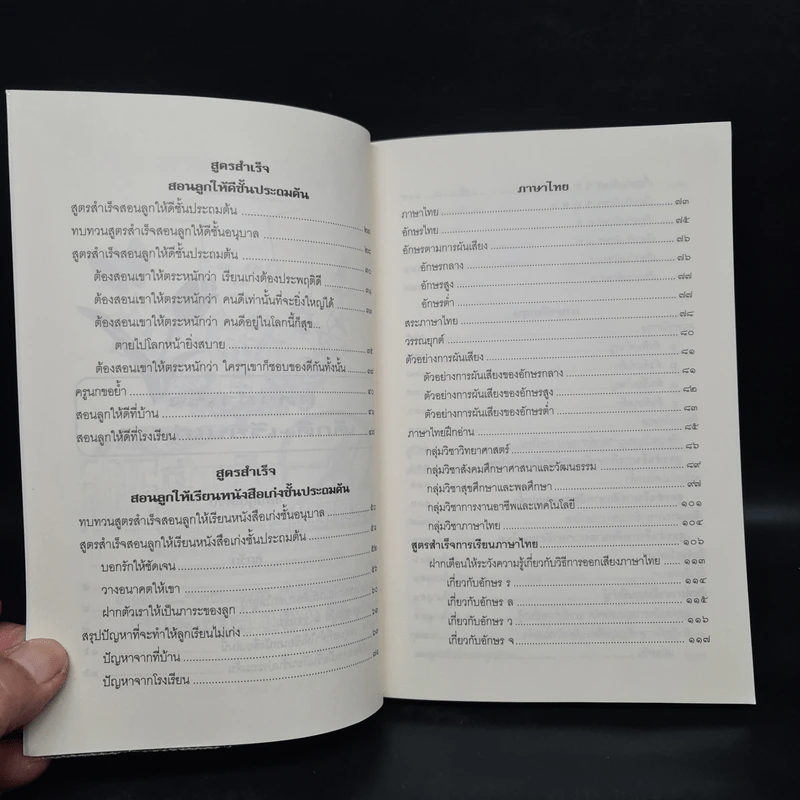 สูตรสำเร็จ
สอนลูกให้ดีชั้นประถมต้น
สูตรสำเร็จสอนลูกให้ดีชั้นประถมต้น
ทบทวนสูตรสำเร็จสอนลูกให้ดีชั้นอนุบาล
สูตรสำเร็จสอนลูกให้ดีชั้นประถมต้น
ต้องสอนเขาให้ตระหนักว่า เรียนเก่งต้องประพฤติดี
ต้องสอนเขาให้ตระหนักว่า คนดีเท่านั้นที่จะยิ่งใหญ่ได้
ต้องสอนเขาให้ตระหนักว่า คนดีอยู่ในโลกนี้ก็สุข...
ตายไปโลกหน้ายิ่งสบาย
ต้องสอนเขาให้ตระหนักว่า ใครๆเขาก็ชอบของดีกันทั้งนั้น
ครูนกขอย้ำ
สอนลูกให้ดีที่บ้าน
สอนลูกให้ดีที่โรงเรียน
สูตรสำเร็จ
สอนลูกให้เรียนหนังสือเก่งชั้นประถมต้น
ทบทวนสูตรสำเร็จสอนลูกให้เรียนหนังสือเก่งชั้นอนุบาล
สูตรสำเร็จสอนลูกให้เรียนหนังสือเก่งชั้นประถมต้น
บอกรักให้ชัดเจน
วางอนาคตให้เขา
ฝากตัวเราให้เป็นภาระของลูก
สรุปปัญหาที่จะทำให้ลูกเรียนไม่เก่ง
ปัญหาจากที่บ้าน
ปัญหาจากโรงเรียน
ภาษาไทย
ภาษาไทย ๗๓
อักษรไทย ๗๕
อักษรตามการผันเสียง ๗๖
อักษรกลาง ๗๖
อักษรสูง ๗๗
อักษรต่ำ ๗๗
สระภาษาไทย ๗๘
วรรณยุกต์ ๘๐
ตัวอย่างการผันเสียง ๘๑
ตัวอย่างการผันเสียงของอักษรกลาง ๘๑
ตัวอย่างการผันเสียงของอักษรสูง ๘๒
ตัวอย่างการผันเสียงของอักษรต่ำ ๘๓
ภาษาไทยฝึกอ่าน ๘๕
กลุ่มวิชาวิทยาศาสตร์ ๘๖
กลุ่มวิชาสังคมศึกษาศาสนาและวัฒนธรรม ๘๙
กลุ่มวิชาสุขศึกษาและพลศึกษา ๙๗
กลุ่มวิชาการงานอาชีพและเทคโนโลยี ๑๐๑
กลุ่มวิชาภาษาไทย ๑๐๔
สูตรสำเร็จการเรียนภาษาไทย ๑๐๖
ฝากเตือนให้ระวังความรู้เกี่ยวกับวิธีการออกเสียงภาษาไทย ๑๑๓
เกี่ยวกับอักษร ร ๑๑๔
เกี่ยวกับอักษร ล ๑๑๕
เกี่ยวกับอักษร ว ๑๑๖
เกี่ยวกับอักษร จ ๑๑๗